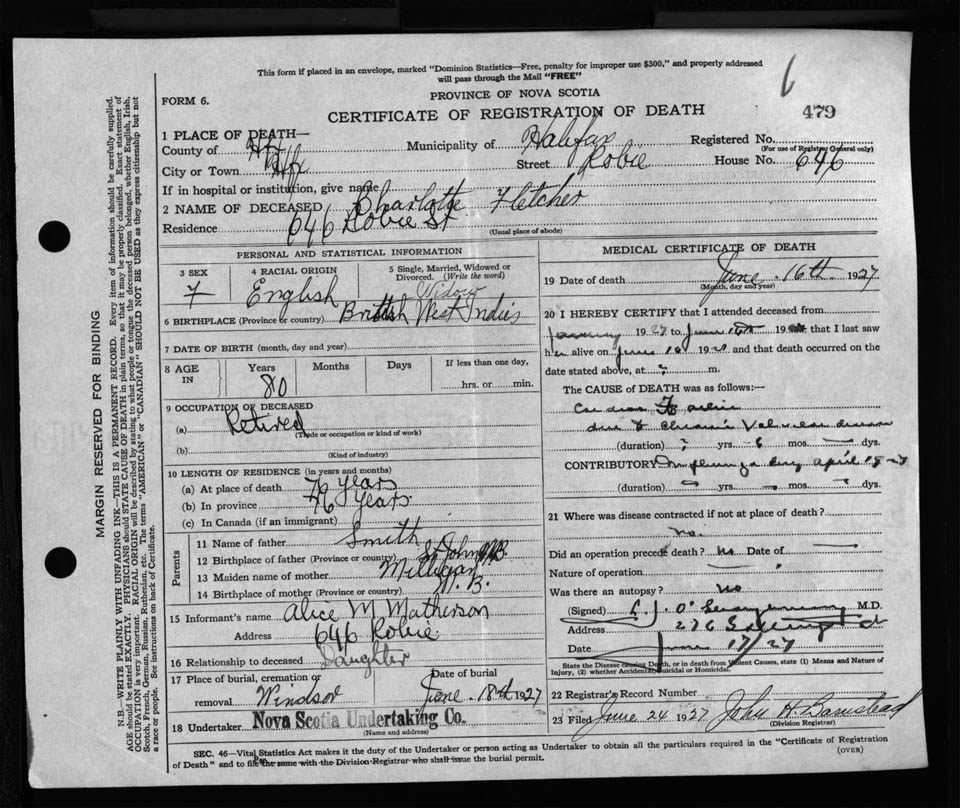 This form if placed in an envelope, marked "Dominion Statistics—Free, penalty for improper use $300," and properly addressed
will pass through the Mail "FREE"
6
PROVINCE OF NOVA SCOTIA
FORM 6.
CERTIFICATE OF REGISTRATION OF DEATH
479
1 PLACE OF DEATH—
County of Hfx Municipality of Halifax Registered No.
(For use of Registrar General only)
City or Town Hfx Street Robie House No. 646
If in hospital or institution, give name
2 NAME OF DECEASED Charlotte Fletcher
Residence 646 Robie St
(Usual place of abode)
PERSONAL AND STATISTICAL INFORMATION
3 SEX 4 RACIAL ORIGIN 5 Single, Married, Widowed or
Divorced. (Write the word)
7 English Widow
6 BIRTHPLACE (Province or country) British West Indies
7 DATE OF BIRTH (month, day and year)
8 AGE IN Years Months Days If less than one day,
80 hrs. or min.
9 OCCUPATION OF DECEASED
(a) Retired
(Trade or occupation or kind of work)
(b)
(Kind of industry)
10 LENGTH OF RESIDENCE (in years and months)
(a) At place of death 76 years
(b) In province 76 years
(c) In Canada (if an immigrant)
Parents
11 Name of father Smith
12 Birthplace of father (Province or country) St John N.B.
13 Maiden name of mother Milligan
14 Birthplace of mother (Province or country) N.B.
15 Informant's name Alice M Matherson
Address 646 Robie
16 Relationship to deceased Daughter
17 Place of burial, cremation or Date of burial
removal Windsor June 18th 1927
18 Undertaker Nova Scotia Undertaking Co.
(Name and address)
MEDICAL CERTIFICATE OF DEATH
19 Date of death June 16th 1927
(Month, day and year)
20 I HEREBY CERTIFY that I attended deceased from
January 1927 to June 16th 19 that I last saw
her alive on June 16 19 and that death occurred on the
date stated above, at m.
The CAUSE of DEATH was as follows:—
Cardiac Failure
due to Chronic Valvular disease
(duration) yrs. 6 mos. dys.
CONTRIBUTORY Influenza April
(duration) yrs. mos. dys.
21 Where was disease contracted if not at place of death?
no.
Did an operation precede death? No Date of
Nature of operation
Was there an autopsy? No
(Signed) M.D.
Address 276
Date June 17/27
State the Disease causing Death, or in death from Violent Causes, state (1) Means and Nature of
Injury, (2) whether Accidental, Suicidal or Homicidal.
22 Registrar's Record Number
23 Filed June 24 1927 John H Barnstead
(Division Registrar)
SEC. 46—Vital Statistics Act makes it the duty of the Undertaker or person acting as Undertaker to obtain all the particulars required in the "Certificate of Registration
of Death" and to file the same with the Division Registrar who shall issue the burial permit.
(OVER)
MARGIN RESERVED FOR BINDING
N.B.—WRITE PLAINLY WITH UNFADING INK—THIS IS A PERMANENT RECORD. Every item of information should be carefully supplied.
AGE should be stated EXACTLY. PHYSICIANS should STATE CAUSE OF DEATH in plain terms, so that it may be properly classified. Exact statement of
OCCUPATION is very important. RACIAL ORIGIN will be described by stating to what people or tongue the deceased person belonged, whether English, Irish,
Scotch, French, German, Russian, Ruthenian, etc. The terms "AMERICAN" or "CANADIAN" SHOULD NOT BE USED as they express citizenship but not
a race or people. See instructions on back of Certificate.